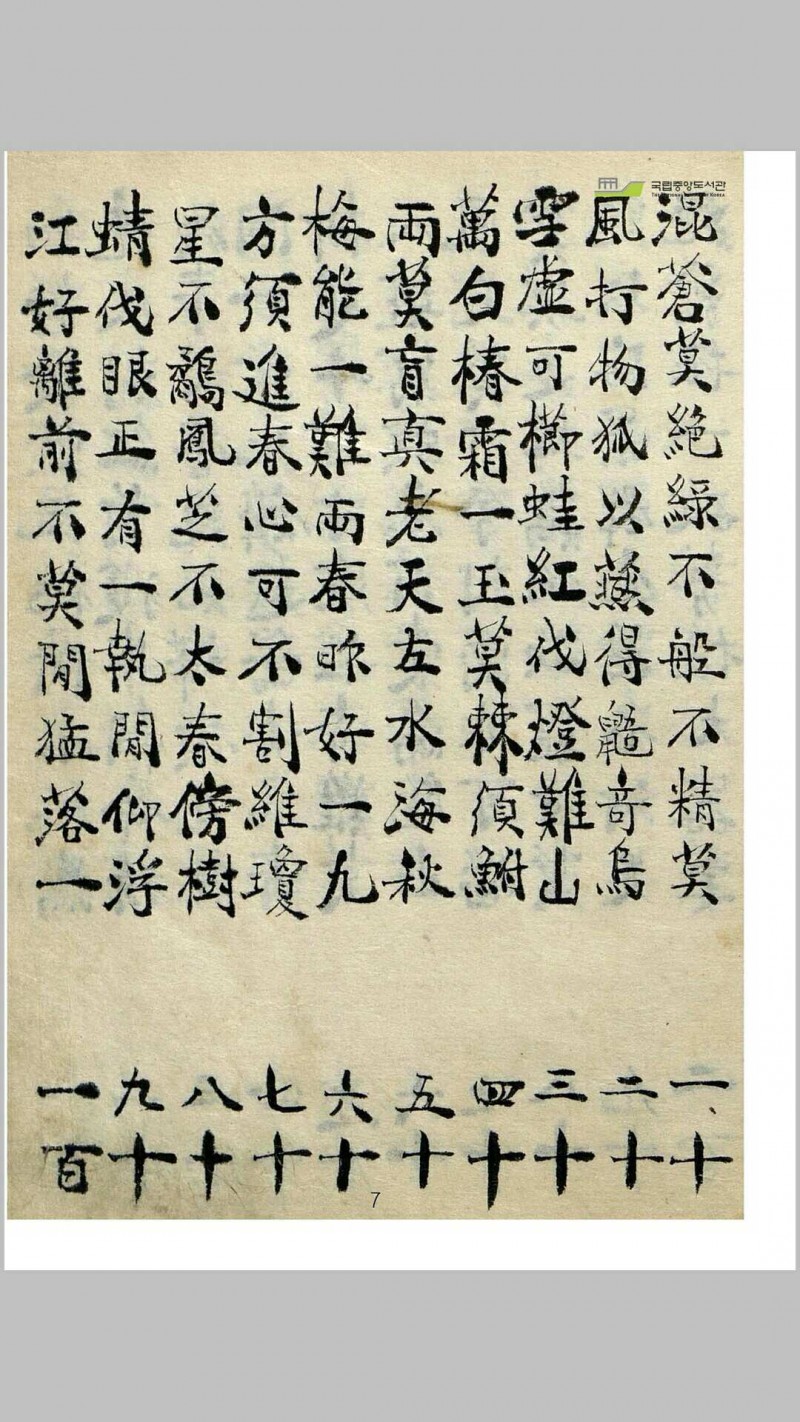 국립중앙도서관
THE NATIONAL LIBRARY OF KOREA
混蒼莫絶綠不般不精莫 一十
風打物狐以燕得竒烏 二十
空虛可櫛蛙紅伐燈難山 三十
萬白椿霜一玉莫棘須鮒 四十
兩莫盲真老天左水海秋 五十
梅能一難兩春昨好一九 六十
方須進春心可不割維瓊 七十
星不鷸鳳芝不太春傍樹 八十
蜻伐眼正有一執閒仰浮 九十
江好離前不莫閒猛落一 一百
7